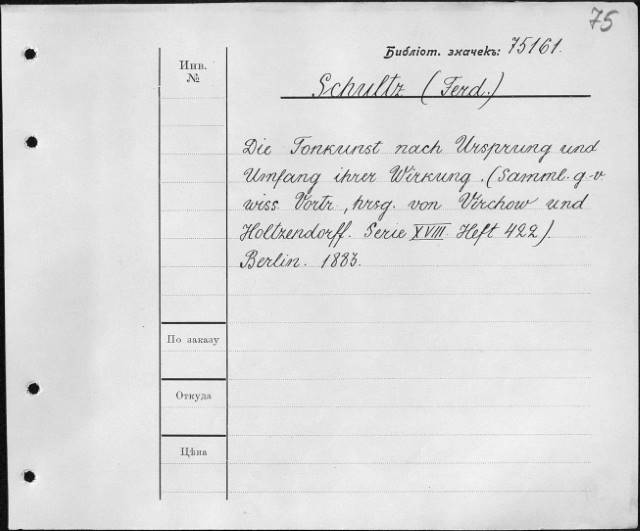 75
Библіот. значекъ: 75161.
Инв.
№
Schultz (Ferd.)
Die Tonkunst nach Ursprung und
Umfang ihrer Wirkung. (Samml. g-v
wiss Vortr., hrsg. von Virchow und
Holtzendorff. Serie XVIII. Heft 422).
Berlin. 1883.
По заказу
Откуда
Цѣна